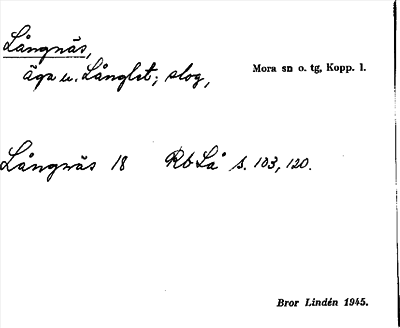 Långnäs,
äga u. Långlet; slog,
Mora sn o. tg, Kopp. l.
Långnäs 18 Rb Lå s. 103, 120.
Bror Lindén 1945.